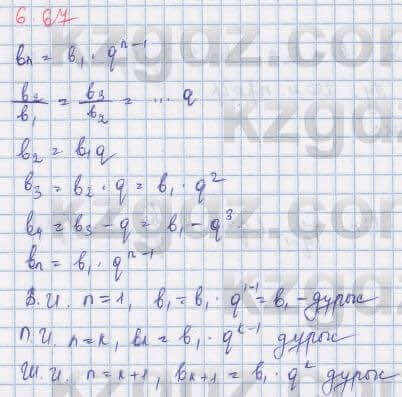 6.67
bₙ = b₁ · qⁿ⁻¹
b₂/b₁ = b₃/b₂ = ... q
b₂ = b₁q
b₃ = b₂ · q = b₁ · q²
b₄ = b₃ - q = b₁ - q³
bₙ = b₁ · qⁿ⁻¹
Д.И. n=1, b₁ = b₁ · q¹⁻¹ = b₁ - дұрыс
П.И. n=k, bₖ = b₁ · qᵏ⁻¹ дұрыс
Ш.И. n=k+1, bₖ₊₁ = b₁ · qᵏ дұрыс
kzgdz.com